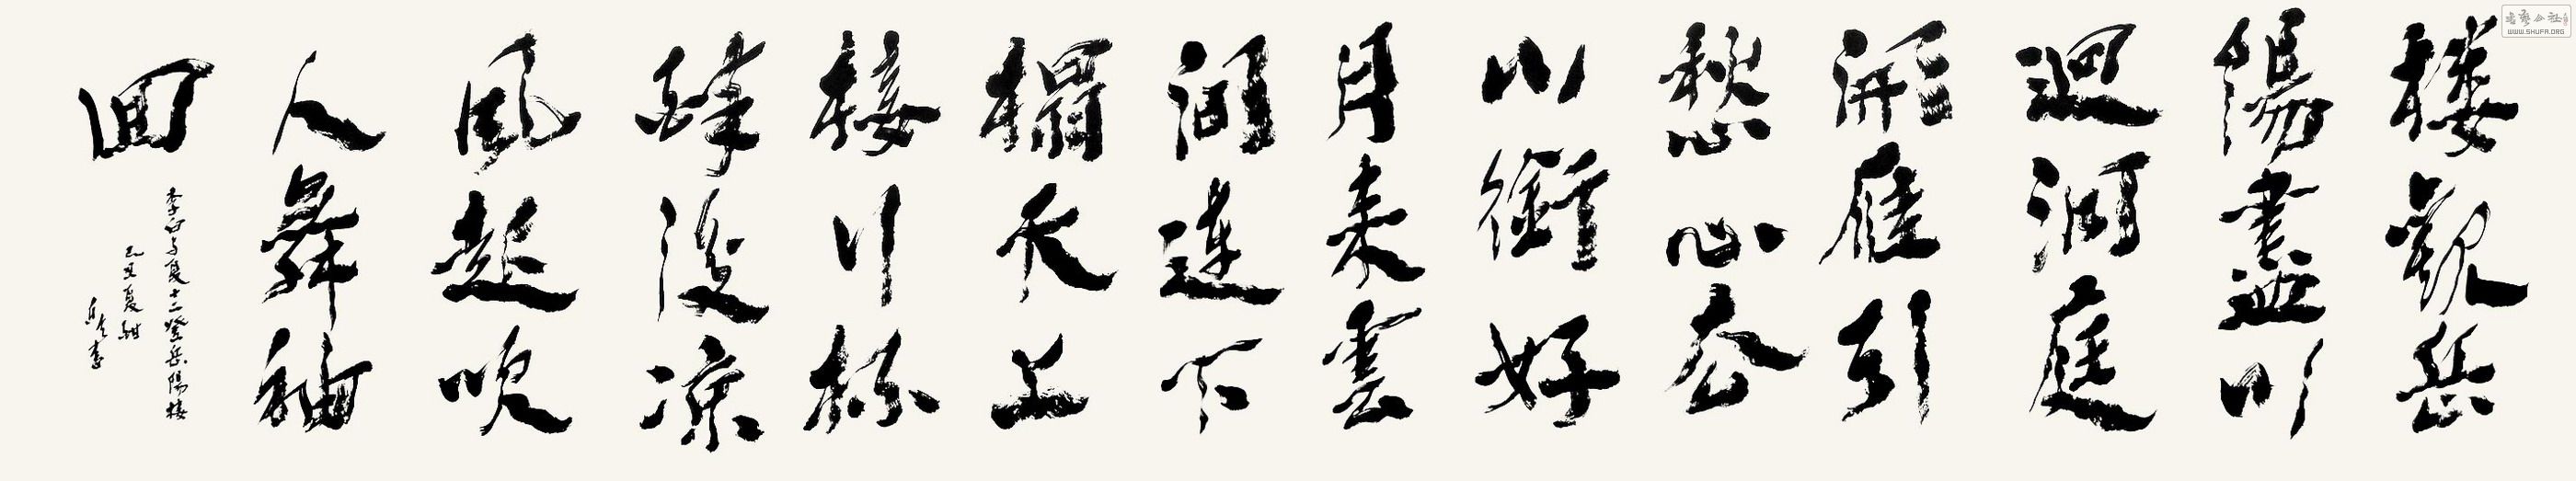 樓觀岳
陽盡川
迥洞庭
開雁引
愁心去
山銜好
月來雲
間連下
榻天上
接行杯
醉後涼
風起吹
人舞袖
回
李白与夏十二登岳陽樓
乙丑夏
書藝公社
WWW.SHUFA.ORG